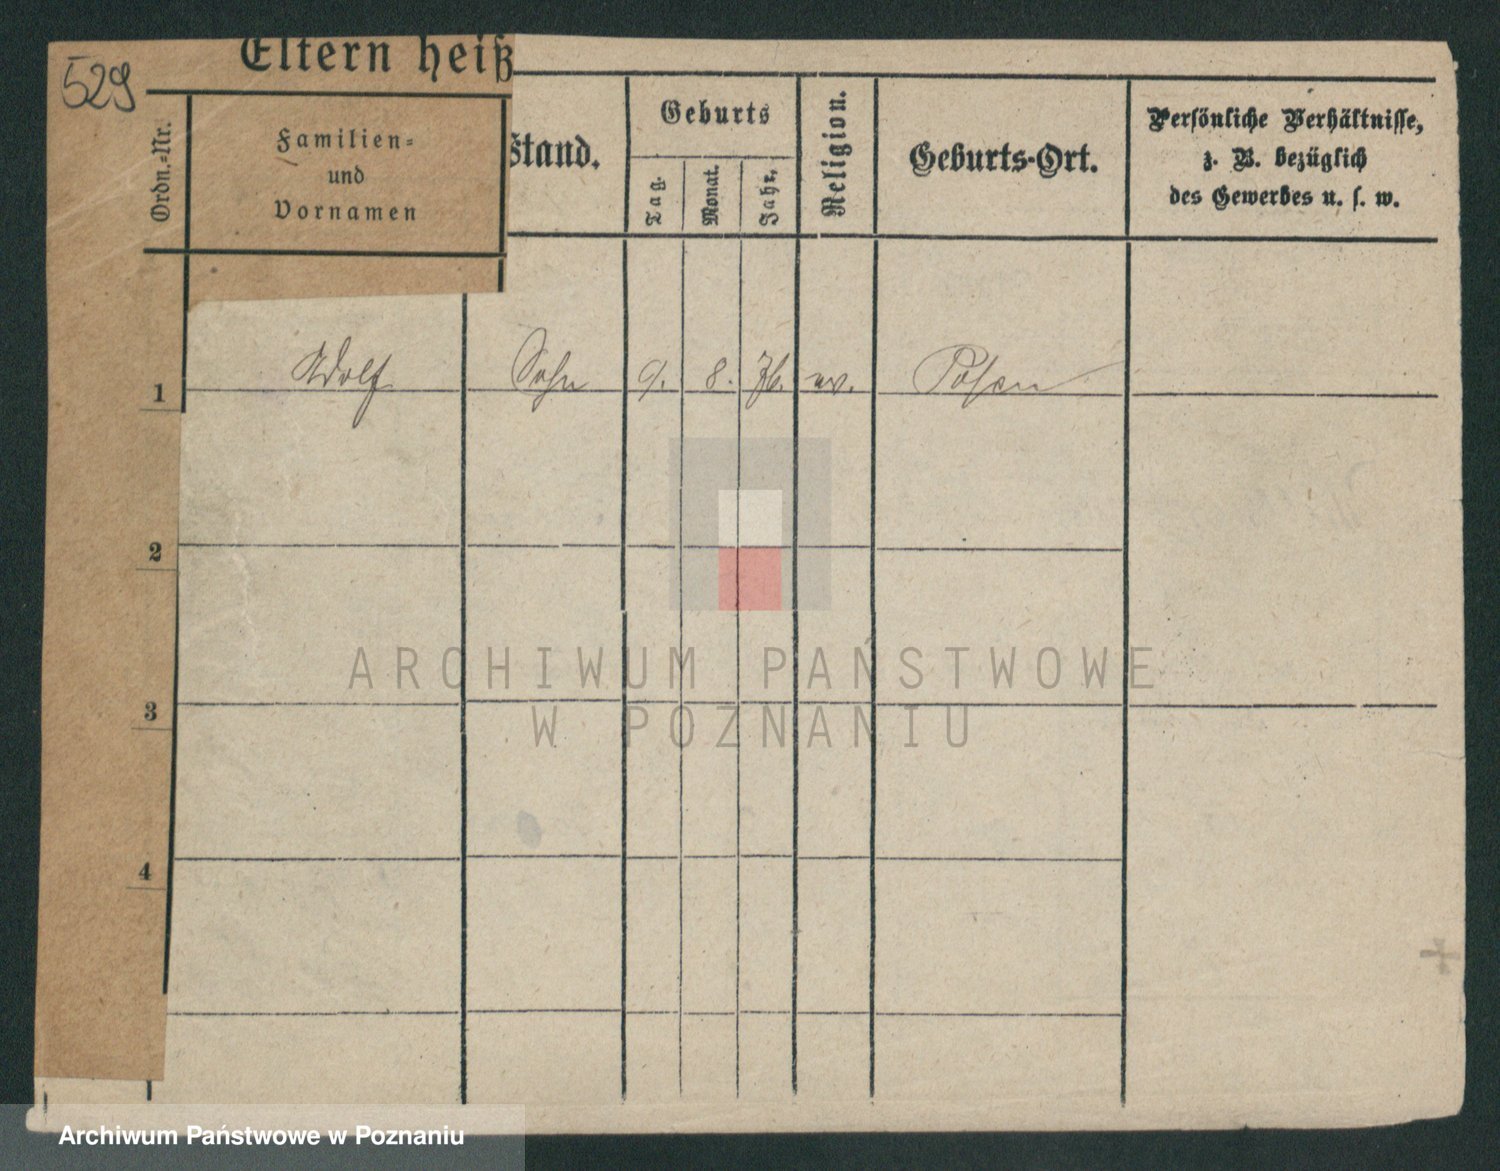 529
Eltern heiß
Ordn.-Nr.
Familien-
und
Vornamen
Stand.
Geburts
Tag.
Monat.
Jahr.
Religion.
Geburts-Ort.
Persönliche Verhältnisse,
z. B. bezüglich
des Gewerbes u. s. w.
1 Adolf Sohn 9. 8. 76. ev. Posen
2
3
4
ARCHIWUM PAŃSTWOWE
W POZNANIU
Archiwum Państwowe w Poznaniu